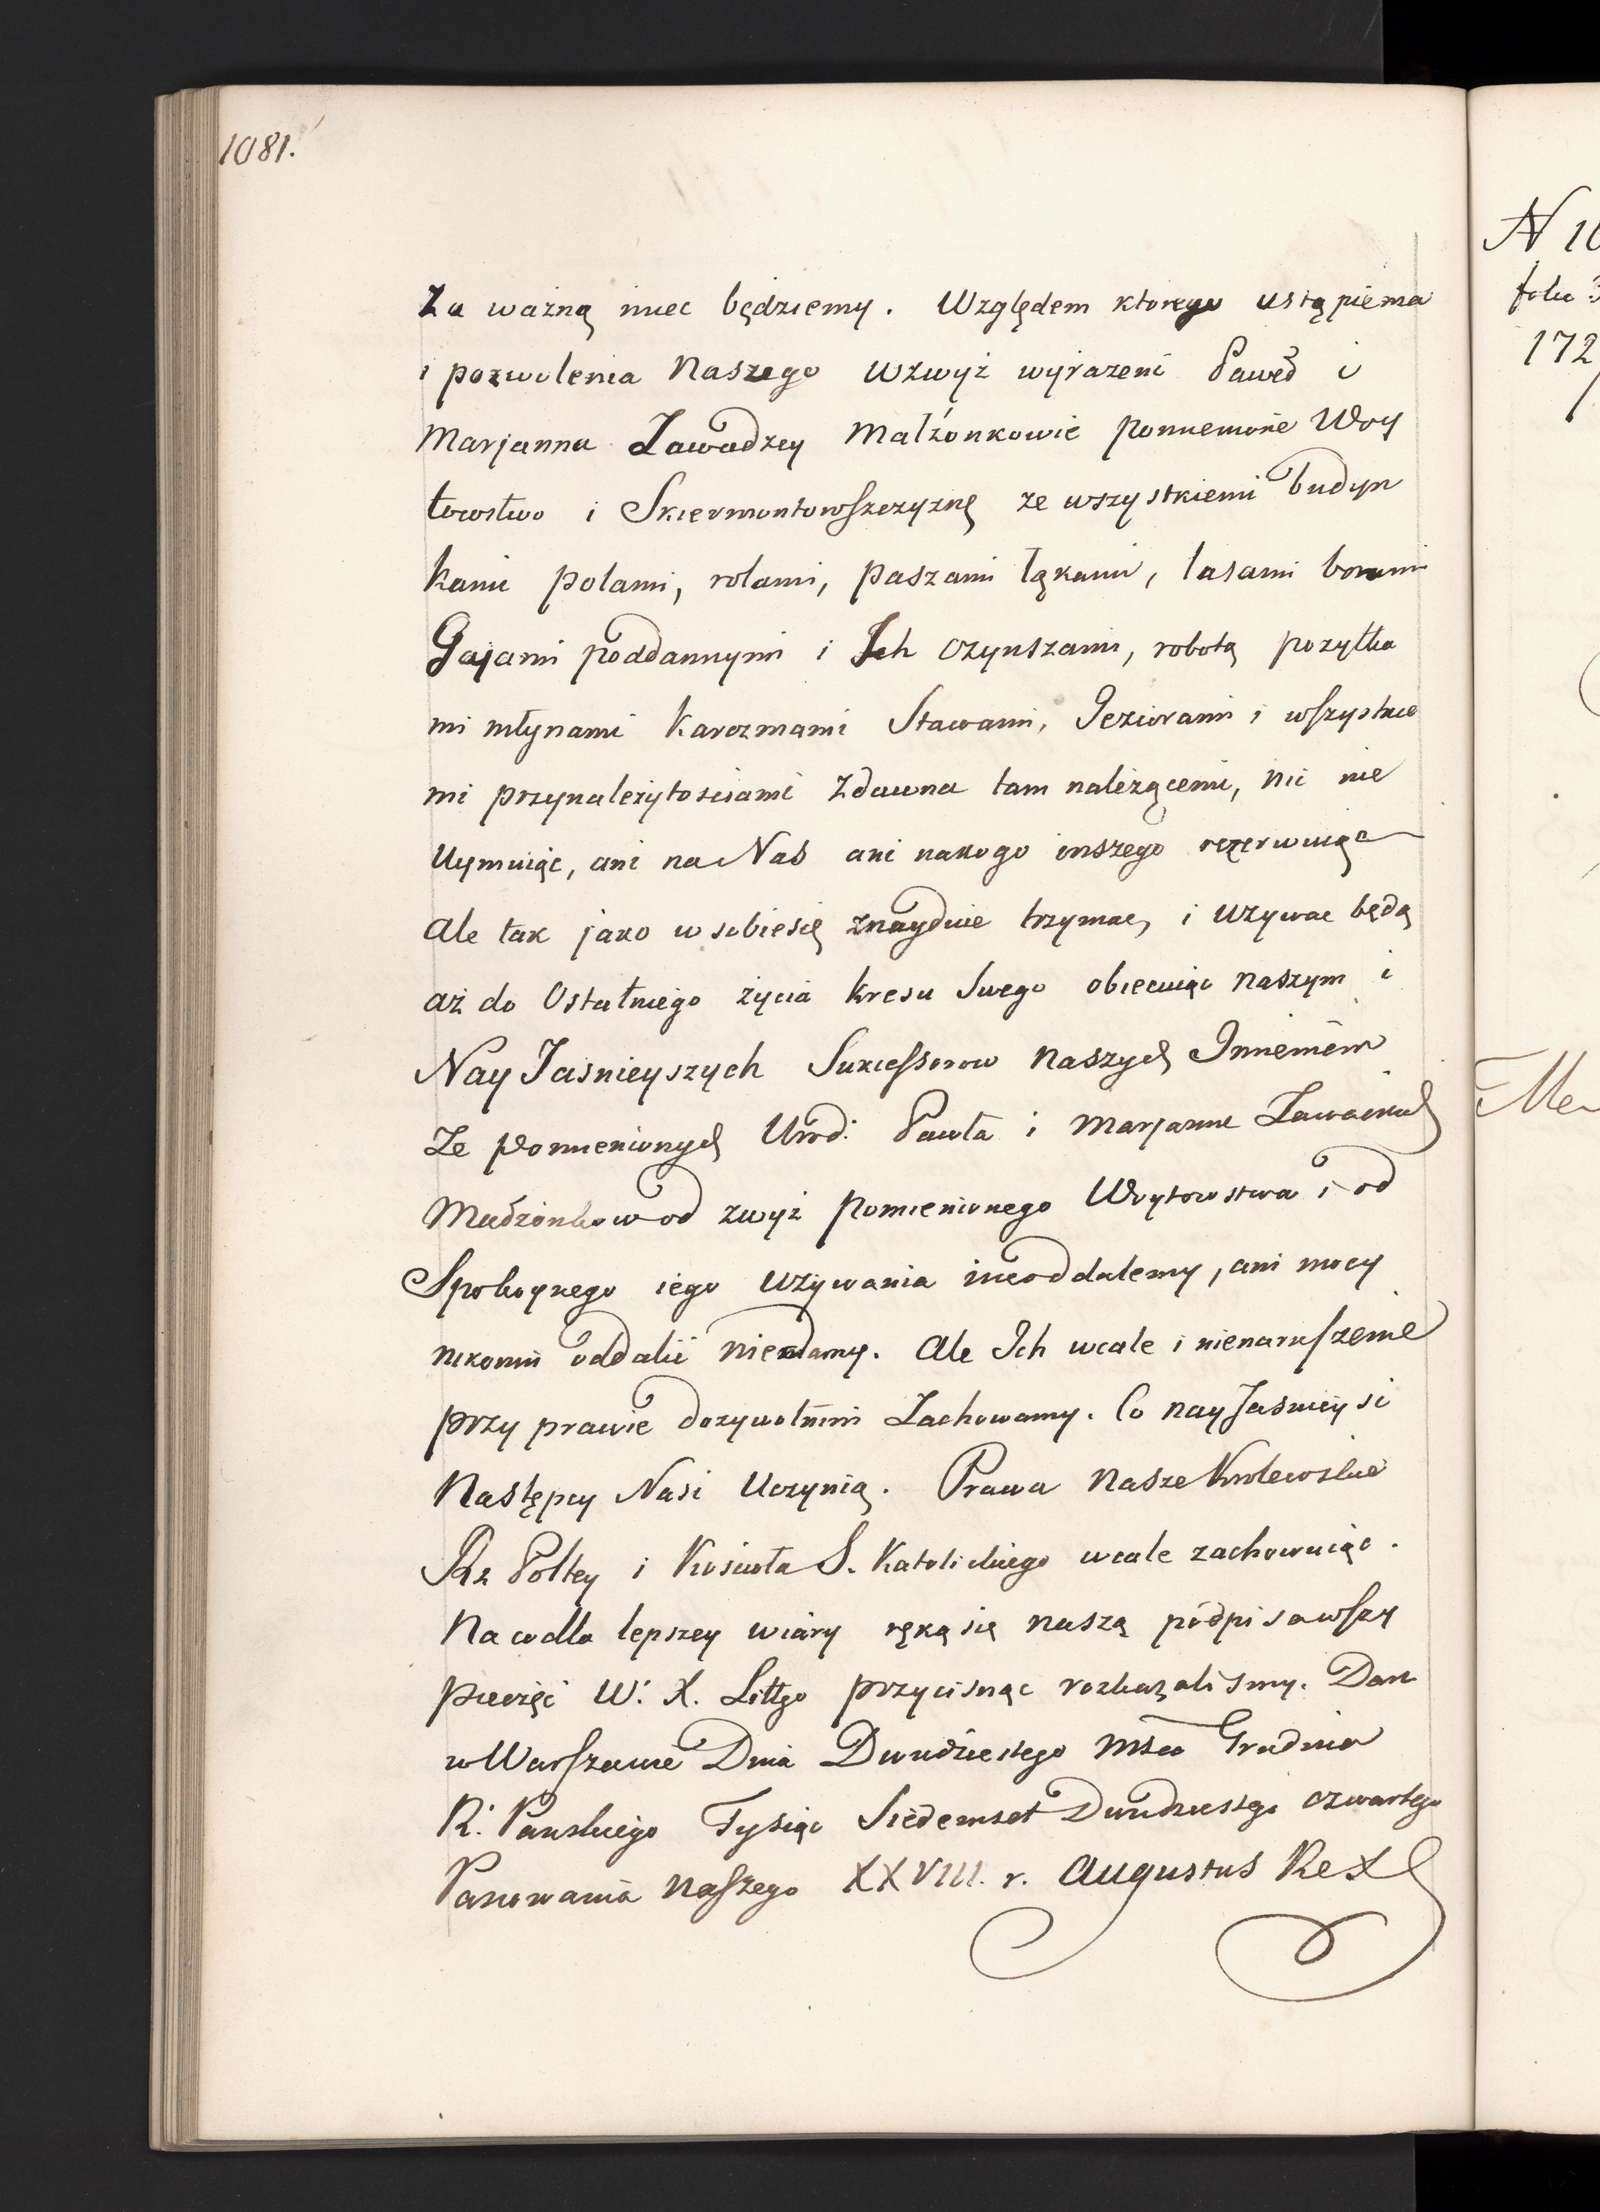 1081.
Za ważną miec będziemy. Względem ktorego ustąpienia
i pozwolenia Naszego wzwyż wyrazeni Paweł i
Marjanna Zawadzcy Małżonkowie pomienione Woy
towstwo i Skiermontowszczyznę ze wszystkiemi budyn
kami polami, rolami, paszami łąkami, lasami borami
Gajami poddannymi i Ich czynszami, robotą pozytka
mi młynami Karczmami Stawami, Jeziorami i wszystkie
mi przynależytosciami Zdawna tam należącemi, nic nie
Uymuiąc, ani na Nas ani nakogo inszego rezerwuiąc
Ale tak jako w sobie się znayduie trzymac, i Uzywac będą
aż do Ostatniego życia kresu Swego obiecuiąc naszym i
Nay Jasnieyszych Sukcessorow Naszych Imieniem
Ze pomienionych Urod: Pawła i Marjanne Zawackich
Małżonkow od zwyż pomienionego Woytowstwa i od
Spokoynego iego Używania nieoddalemy, ani mocy
nikomu oddalić niedamy. Ale Ich wcale i nienaruszenie
przy prawie dozywotnim Zachowamy. Co nay Jasnieysi
Następcy Nasi Uczynią. Prawa Nasze Krolewskie
Rz Poltey i Kościoła S. Katolickiego wcale zachowuiąc.
Na co dla lepszey wiary ręką się naszą podpisawszy
pieczęć W. X. Littgo przycisnąc rozkazalismy. Dan
w Warszawie Dnia Dwudziestego Msca Grudnia
R. Panskiego Tysiąc Siedemset Dwudziestego czwartego
Panowania Naszego XXVIII. r. Augustus Rex
N 10
folio 3
172